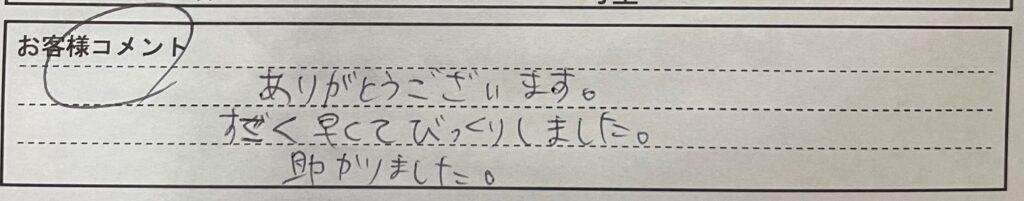 お客様コメント
ありがとうございます。
すごく早くてびっくりしました。
助かりました。